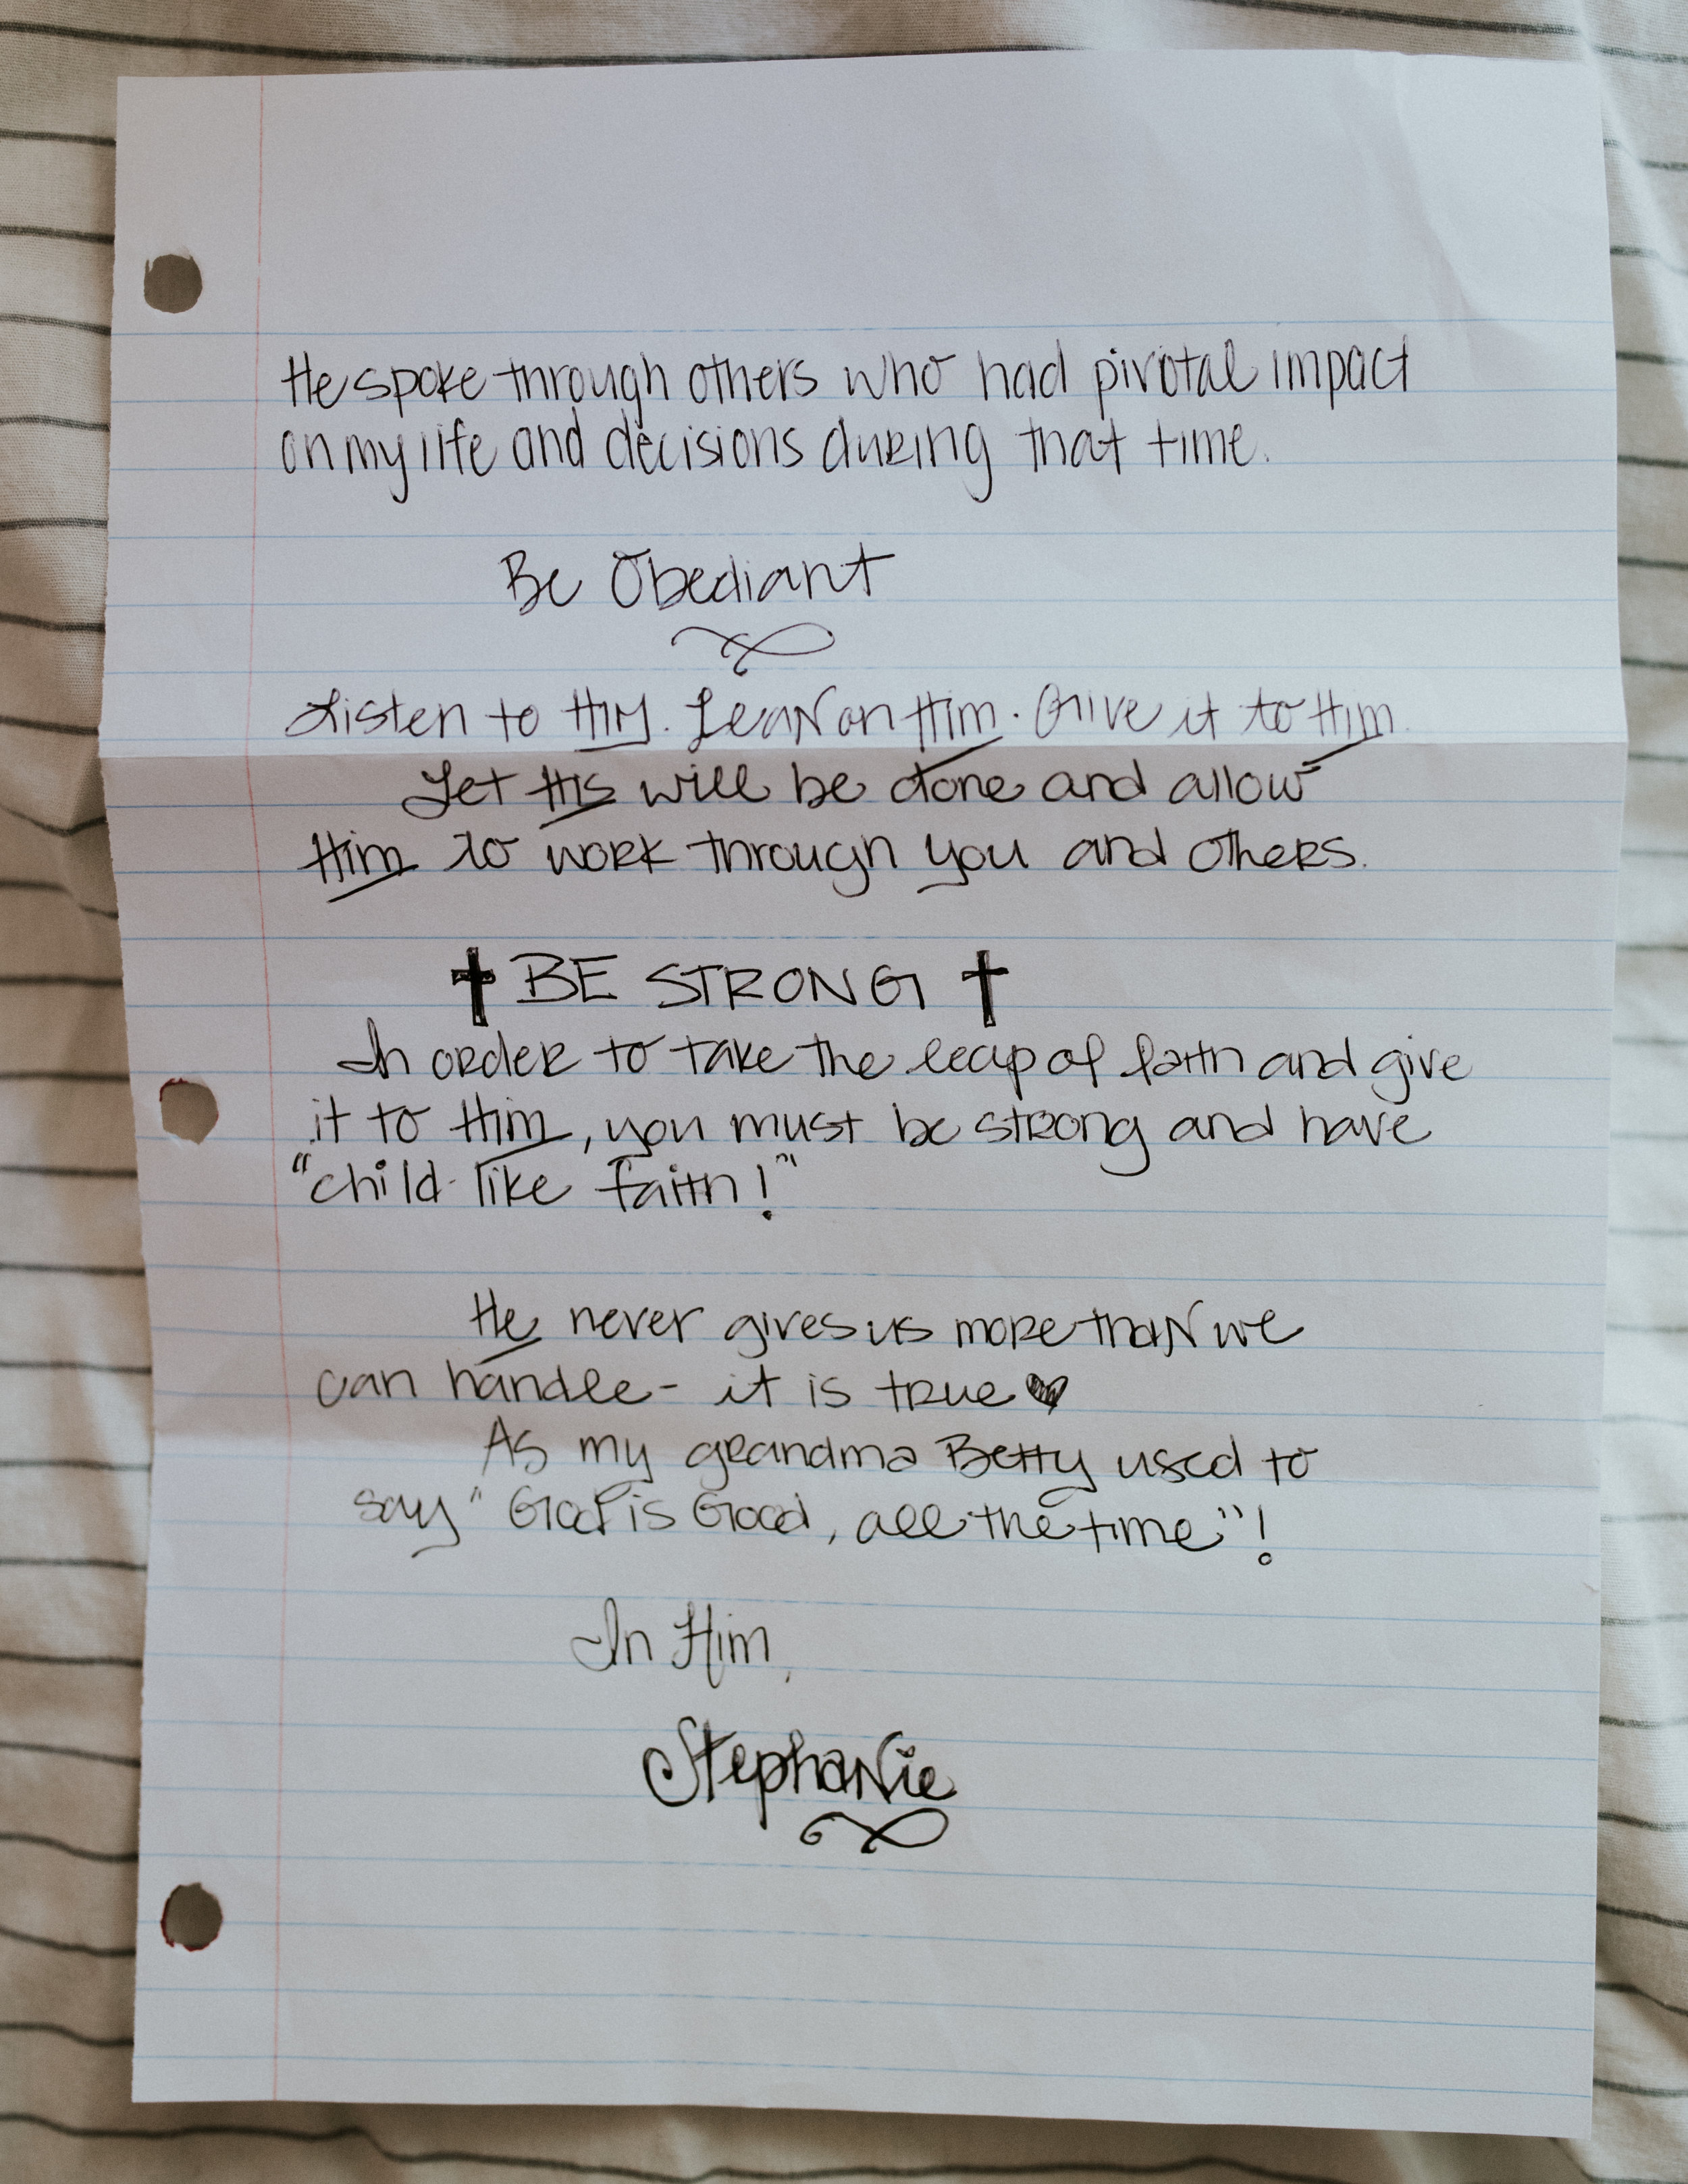 He spoke through others who had pivotal impact
on my life and decisions during that time.
Be Obediant
Listen to Him. Lean on Him. Give it to Him.
Let His will be done and allow
Him to work through you and others.
✝ BE STRONG ✝
In order to take the leap of faith and give
it to Him, you must be strong and have
"child-like faith!"
He never gives us more than we
can handle - it is true ♥
As my grandma Betty used to
say "God is Good, all the time"!
In Him,
Stephanie